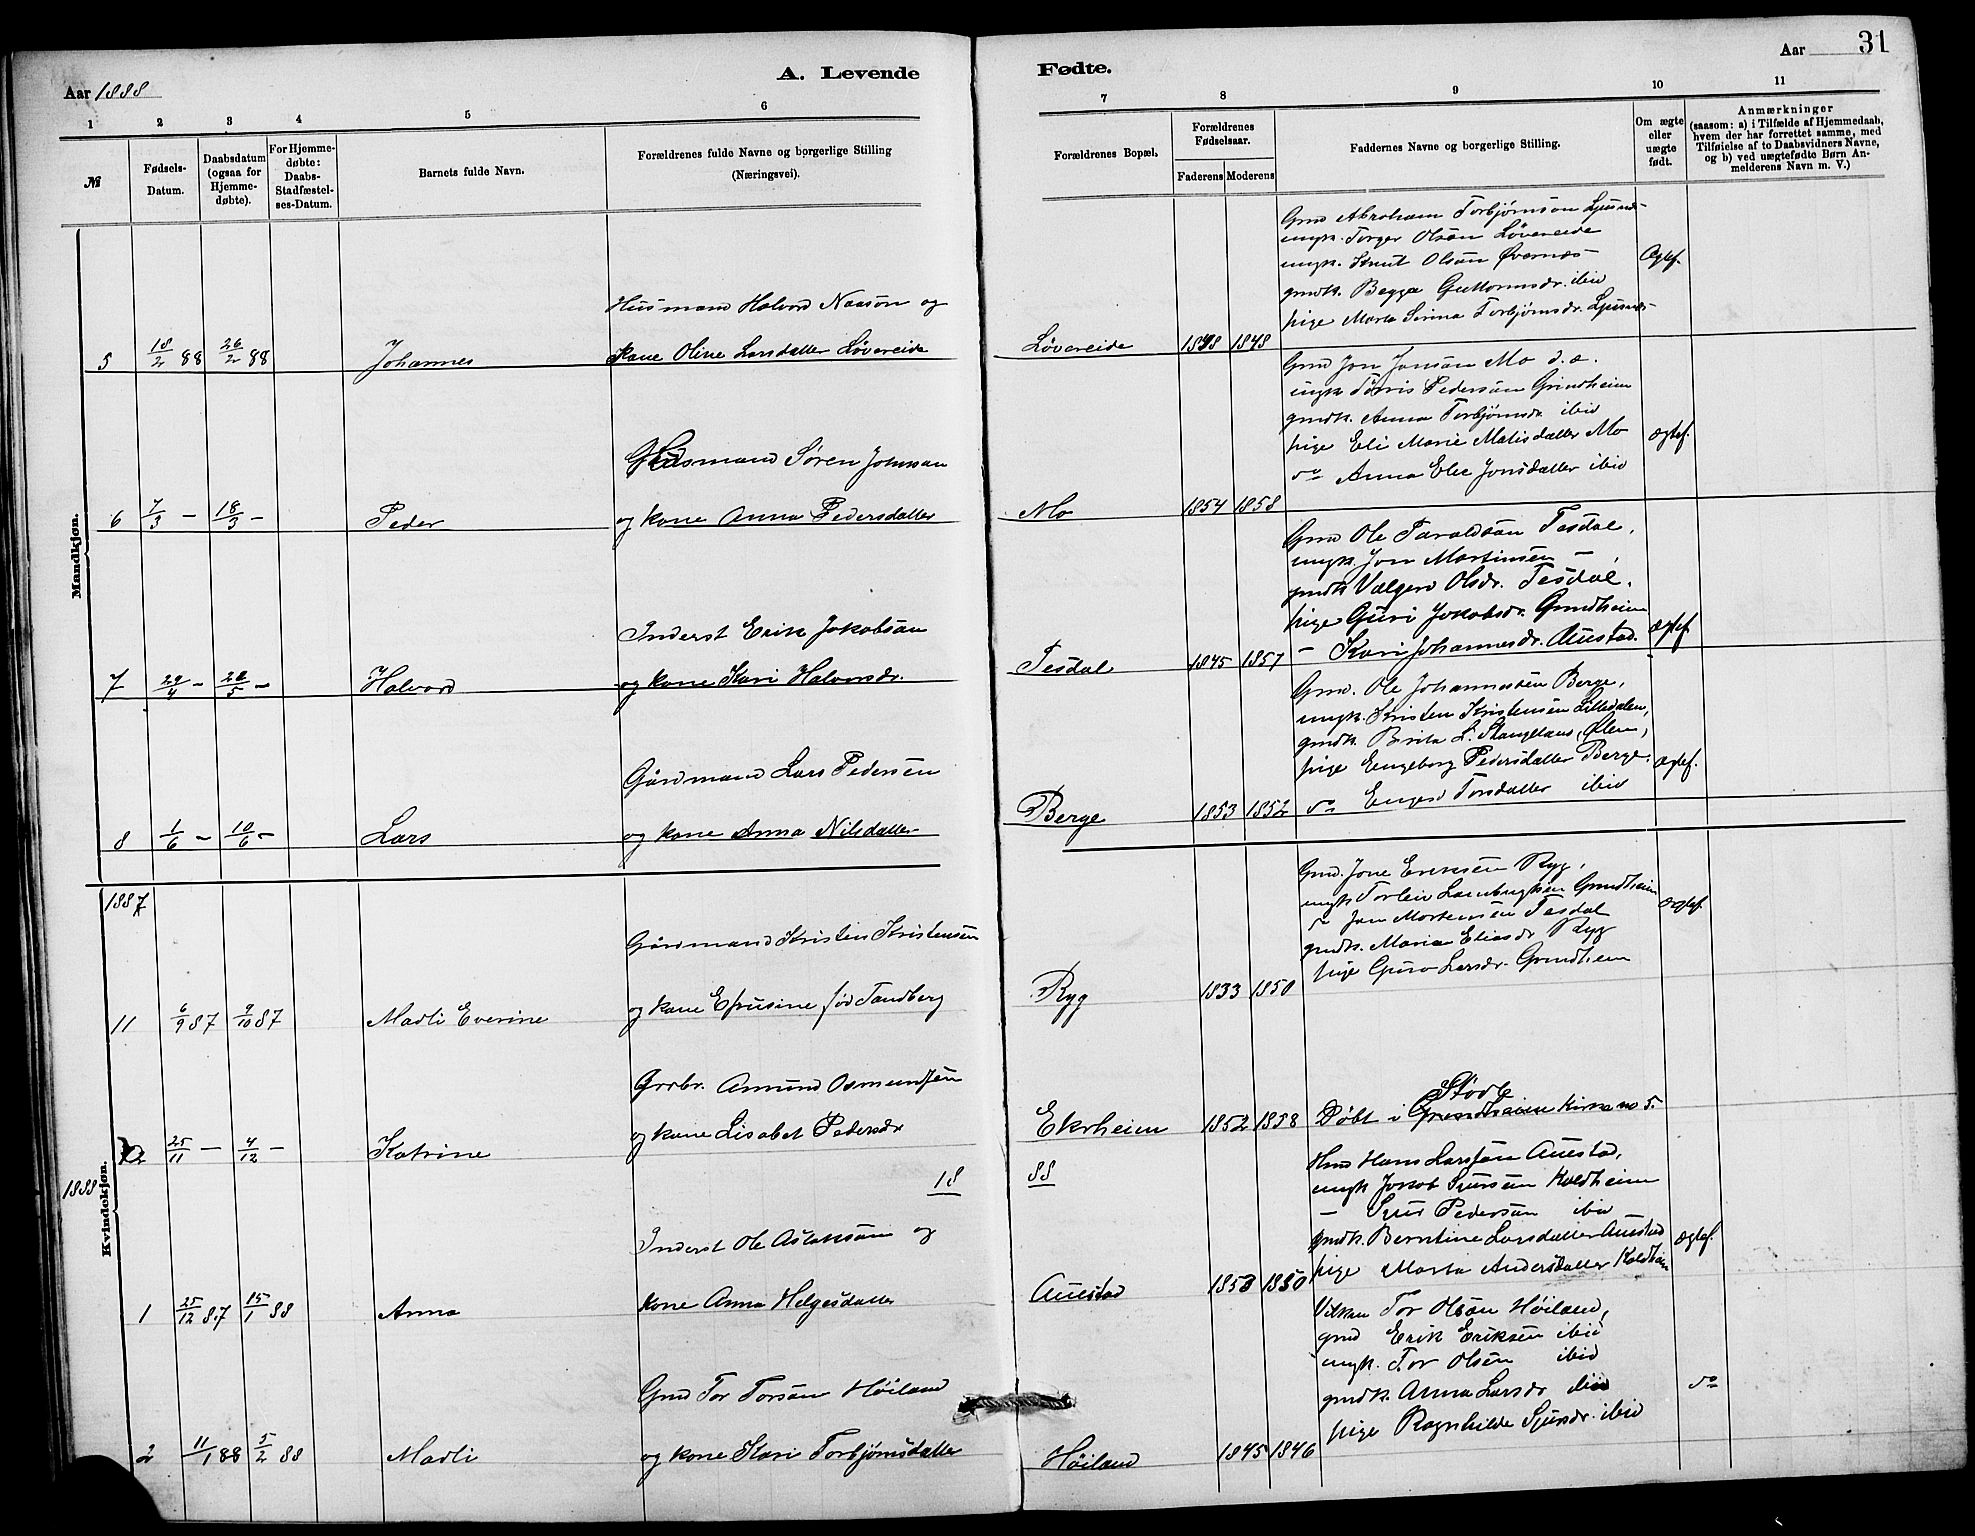 Aar 1888
A. Levende
Fødte.
Aar 31
1 2 3 4 5 6 7 8 9 10 11
№
Fødsels-Datum.
Daabsdatum (ogsaa for Hjemmedøbte).
For Hjemmedøbte: Daabs-Stadfæstelses-Datum.
Barnets fulde Navn.
Forældrenes fulde Navne og borgerlige Stilling (Næringsvei).
Forældrenes Bopæl.
Forældrenes Fødselsaar.
Faderens Moderens
Faddernes Navne og borgerlige Stilling.
Om ægte eller uægte født.
Anmærkninger
(saasom: a) i Tilfælde af Hjemmedaab, hvem der har forrettet samme, med Tilføielse af to Daabsvidners Navne, og b) ved uægtefødte Børn Anmelderens Navn m. V.)
Mandkjøn.
5 18/2 88 26/2 88 Johannes
Husmand Halvord Naasøn og
Kone Oline Larsdatter Løvereide
Løvereide 1848 1848
Gmd Abraham Torbjørnsøn Ljusnes
ungk. Torger Olsøn Løvereide
ungk. Knut Olsøn Øvernes
gmdk. Begga Guttormsdr. ibid
pige Marta Serina Torbjørnsdr. Ljusnes
Ægtef.
6 7/3 - 18/3 - Peder
Husmand Søren Johnsøn
og kone Anna Pedersdatter
Mo 1854 1858
Gmd Jon Jonsøn Mo d.æ.
ungk Tørris Pedersøn Grindheim
gmdk. Anna Torbjørnsdr. ibid
pige Eli Marie Matisdatter Mo
do Anna Elie Jonsdatter ibid
ægtef.
7 29/4 - 28/5 - Halvord
Inderst Erik Jakobsøn
og kone Kari Halvorsdr.
Tesdal 1845 1857
Gmd Ole Taraldsøn Tesdal,
ungk. Jon Martinsen -
gmdk Valgerd Olsdr. Tesdal.
pige Guri Jokobsdr. Grindheim
- Kari Johannesdr. Austad.
ægtef.
8 1/6 - 10/6 - Lars
Gårdmand Lars Pedersen
og kone Anna Nilsdatter
Berge 1853 1852
Gmd. Ole Johannesen Berge,
ungk. Kristen Kristensen Lilledalen,
gmdk. Brita L. Stangeland, Ølen,
pige Engeborg Pedersdatter Berge.
do Engerd Torsdatter ibid
ægtef.
1887
Kvindekjøn.
11 6/9 87 9/10 87 Madli Everine
Gårdmand Kristen Kristensen
og kone Efrusine fød Tandberg
Ryg 1833 1850
Gmd. Jone Eriksen Ryg,
ungk Torlein Grindheim
do Jon Mortensen Tesdal
gmdk. Maria Eliasdr Ryg
pige Guro Larsdr. Grindheim
ægtef.
12 25/11 - 4/12 - Katrine
Grdbr. Amund Osmundsen
og kone Lisabet Pedersdr
Ekrheim 1852 1858
Døbt i Stødle Kirke no 5.
1888
18 88
1 25/12 87 15/1 88 Anna
Inderst Ole Aslaksøn og
kone Anna Helgesdatter
Austad 1853 1850
Hmd Hans Larssøn Austad,
ungk Jokob Sjursen Koldheim
- Sjur Pedersøn ibid
gmdk. Berntine Larsdatter Austad
pige Marta Andersdatter Koldheim
ægtef.
2 11/1 88 5/2 88 Madli
Gmd Tor Torsøn Høiland
og kone Kari Torbjørnsdatter
Høiland 1845 1846
Tor Olsøn Høiland,
gmd Erik Eriksen ibid
ungk. Tor Olsen ibid
gmdk. Anna Larsdr ibid
pige Ragnhilde Sjursdr. ibid
do